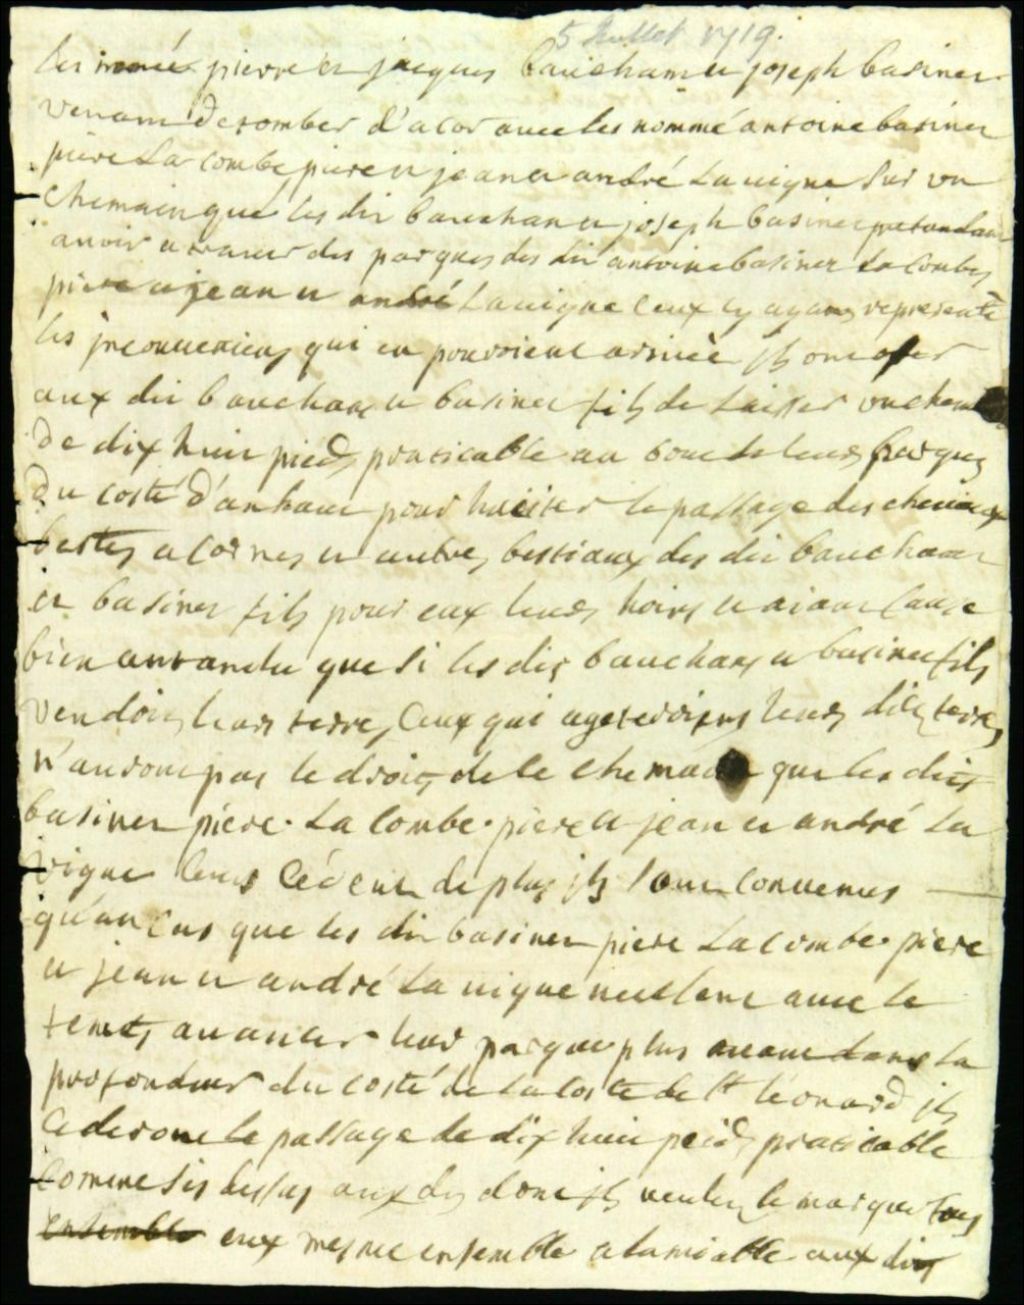 5 Juillet 1719.
Les només pierre et jacques bauchant et joseph basinet
venant de tomber d'acor avec les nommé antoine basinet
piere La combe piere et jean et andré Lavigne Sur un
chemain que les dit bauchan et joseph basinet pretandant
avoir a traver des parques des dit antoine basinet La combes
piere et jean et andré Lavigne Ceux cy ayans representé
les jnconveniens qui en pouroient arrivér jls ont ofer
aux dit bauchan et basinet fils de Laisser un chem
de dix huit pieds praticable au bout de leurs parques
du costé d'anhaut pour le passage des
bestes a cornes et autres bestiaux des dit bauchant
et basinet fils pour eux leurs hoirs et aiant cause
bien antandu que si les dis bauchans et basinet fils
vendois leurs terres, Ceux qui ageteroient leurs dites terres
n'auront pas le droit de le chemain que les dits
basinet piere La Combe piere et jean et andré La
vigne leurs cédent de plus jls sont convenus
qu'an cas que les dit basinet piere La combe piere
et jean et andré La vigne avec le
temts avancer leur parque plus avant dans La
profondeur du costé de La coste de St léonard jls
cederont le passage de dix huit pieds praticable
comme sis dessus aux dis dont jls le marquer tous
ensemble eux mesme ensemble a lamiable aux dits